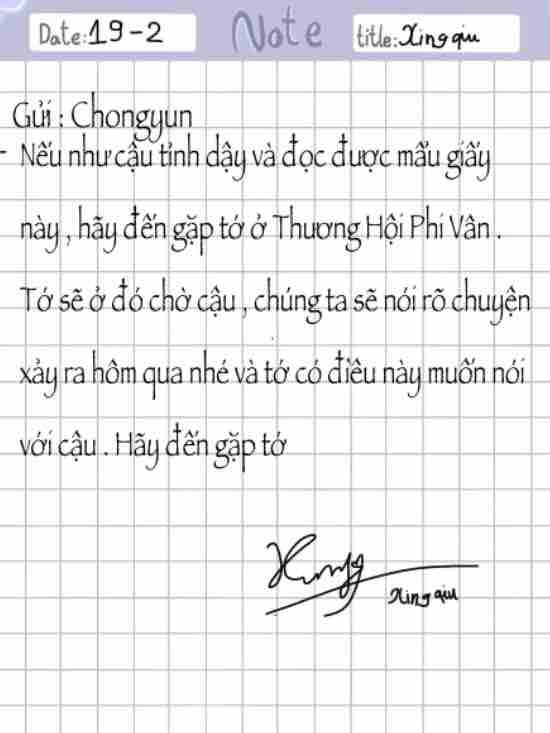 Date: 19-2 Note title: Xingqiu
Gửi : Chongyun
- Nếu như cậu tỉnh dậy và đọc được mẩu giấy
này , hãy đến gặp tớ ở Thương Hội Phi Vân .
Tớ sẽ ở đó chờ cậu , chúng ta sẽ nói rõ chuyện
xảy ra hôm qua nhé và tớ có điều này muốn nói
với cậu . Hãy đến gặp tớ
Xingqiu